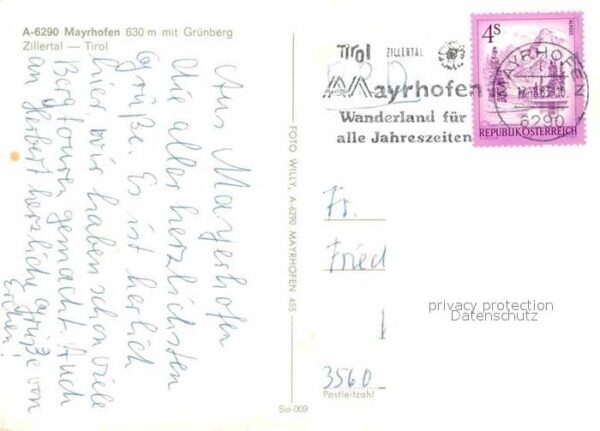 A-6290 Mayrhofen 630 m mit Grünberg
Zillertal — Tirol
Aus Mayerhofen
die aller herzlichsten
Grüße. Es ist herlich
hier wir haben schon viele
Bergtouren gemacht. Auch
an Herbert herzliche Grüße von
FOTO WILLY, A-6290 MAYRHOFEN 455
So-009
Tirol ZILLERTAL
Mayrhofen
Wanderland für
alle Jahreszeiten
MAYRHOFEN
6290
4S
REPUBLIK ÖSTERREICH
Fr.
Fried
3560
Postleitzahl
privacy protection
Datenschutz